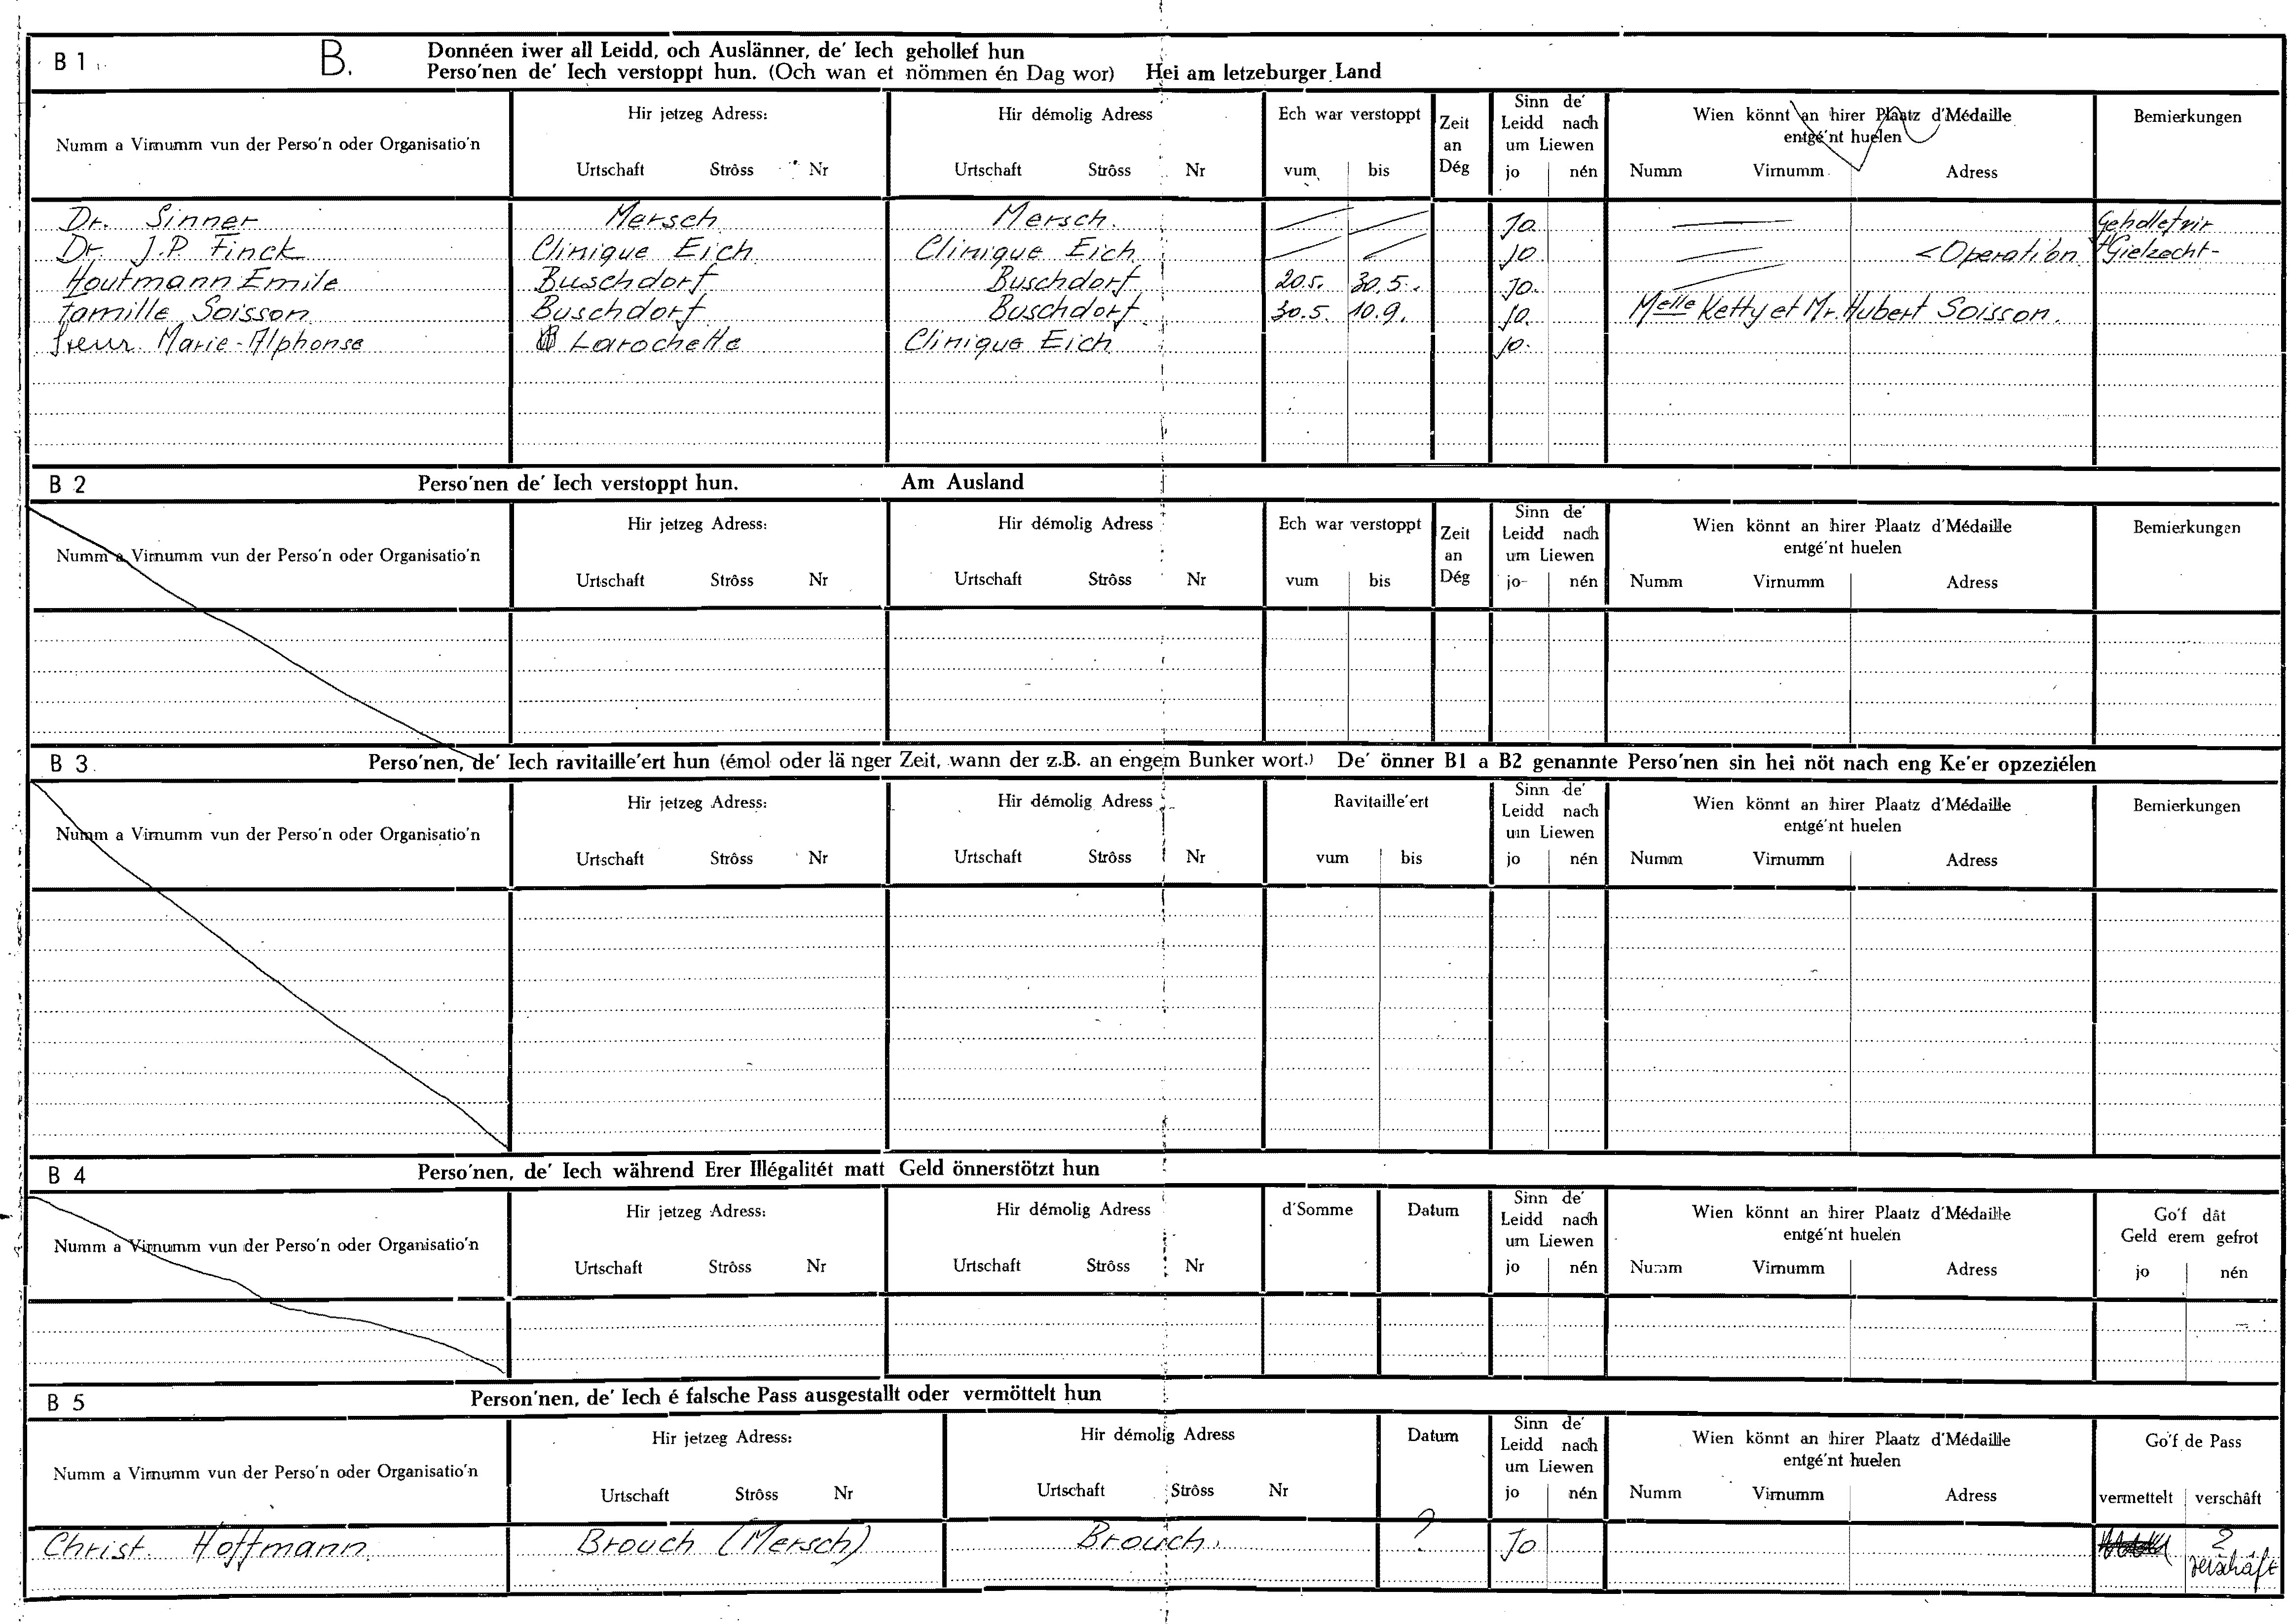 B 1 B. Donnéen iwer all Leidd, och Auslänner, de' Iech gehollef hun
Perso'nen de' Iech verstoppt hun. (Och wan et nömmen én Dag wor) Hei am letzeburger Land
Numm a Virnumm vun der Perso'n oder Organisatio'n
Hir jetzeg Adress:
Urtschaft Strôss Nr
Hir démolig Adress
Urtschaft Strôss Nr
Ech war verstoppt
vum bis
Zeit
an
Dég
Sinn de'
Leidd nach
um Liewen
jo nén
Wien könnt an hirer Plaatz d'Médaille
entgé'nt huelen
Numm Virnumm Adress
Bemierkungen
Dr. Sinner Mersch Mersch. Jo. Gehollef vir
Dr. J.P Finck Clinique Eich Clinique Eich Jo. < Operation
Houtmann Emile Buschdorf Buschdorf 20.5. 30.5. Jo.
famille Soisson Buschdorf Buschdorf 30.5. 10.9. Jo. Melle Ketty et Mr. Hubert Soisson.
Marie-Alphonse Larochette Clinique Eich Jo.
B 2 Perso'nen de' Iech verstoppt hun. Am Ausland
Numm a Virnumm vun der Perso'n oder Organisatio'n
Hir jetzeg Adress:
Urtschaft Strôss Nr
Hir démolig Adress
Urtschaft Strôss Nr
Ech war verstoppt
vum bis
Zeit
an
Dég
Sinn de'
Leidd nach
um Liewen
jo nén
Wien könnt an hirer Plaatz d'Médaille
entgé'nt huelen
Numm Virnumm Adress
Bemierkungen
B 3 Perso'nen, de' Iech ravitaille'ert hun (émol oder lä nger Zeit, wann der z.B. an engem Bunker wort.) De' önner B1 a B2 genannte Perso'nen sin hei nöt nach eng Ke'er opzeziélen
Numm a Virnumm vun der Perso'n oder Organisatio'n
Hir jetzeg Adress:
Urtschaft Strôss Nr
Hir démolig Adress
Urtschaft Strôss Nr
Ravitaille'ert
vum bis
Sinn de'
Leidd nach
um Liewen
jo nén
Wien könnt an hirer Plaatz d'Médaille
entgé'nt huelen
Numm Virnumm Adress
Bemierkungen
B 4 Perso'nen, de' Iech während Erer Illégalitét matt Geld önnerstötzt hun
Numm a Virnumm vun der Perso'n oder Organisatio'n
Hir jetzeg Adress:
Urtschaft Strôss Nr
Hir démolig Adress
Urtschaft Strôss Nr
d'Somme
Datum
Sinn de'
Leidd nach
um Liewen
jo nén
Wien könnt an hirer Plaatz d'Médaille
entgé'nt huelen
Numm Virnumm Adress
Go'f dât
Geld erem gefrot
jo nén
B 5 Person'nen, de' Iech é falsche Pass ausgestallt oder vermöttelt hun
Numm a Virnumm vun der Perso'n oder Organisatio'n
Hir jetzeg Adress:
Urtschaft Strôss Nr
Hir démolig Adress
Urtschaft Strôss Nr
Datum
Sinn de'
Leidd nach
um Liewen
jo nén
Wien könnt an hirer Plaatz d'Médaille
entgé'nt huelen
Numm Virnumm Adress
Go'f de Pass
vermettelt verschâft
Christ. Hoffmann Brouch (Mersch) Brouch. ? Jo ?
verschâft